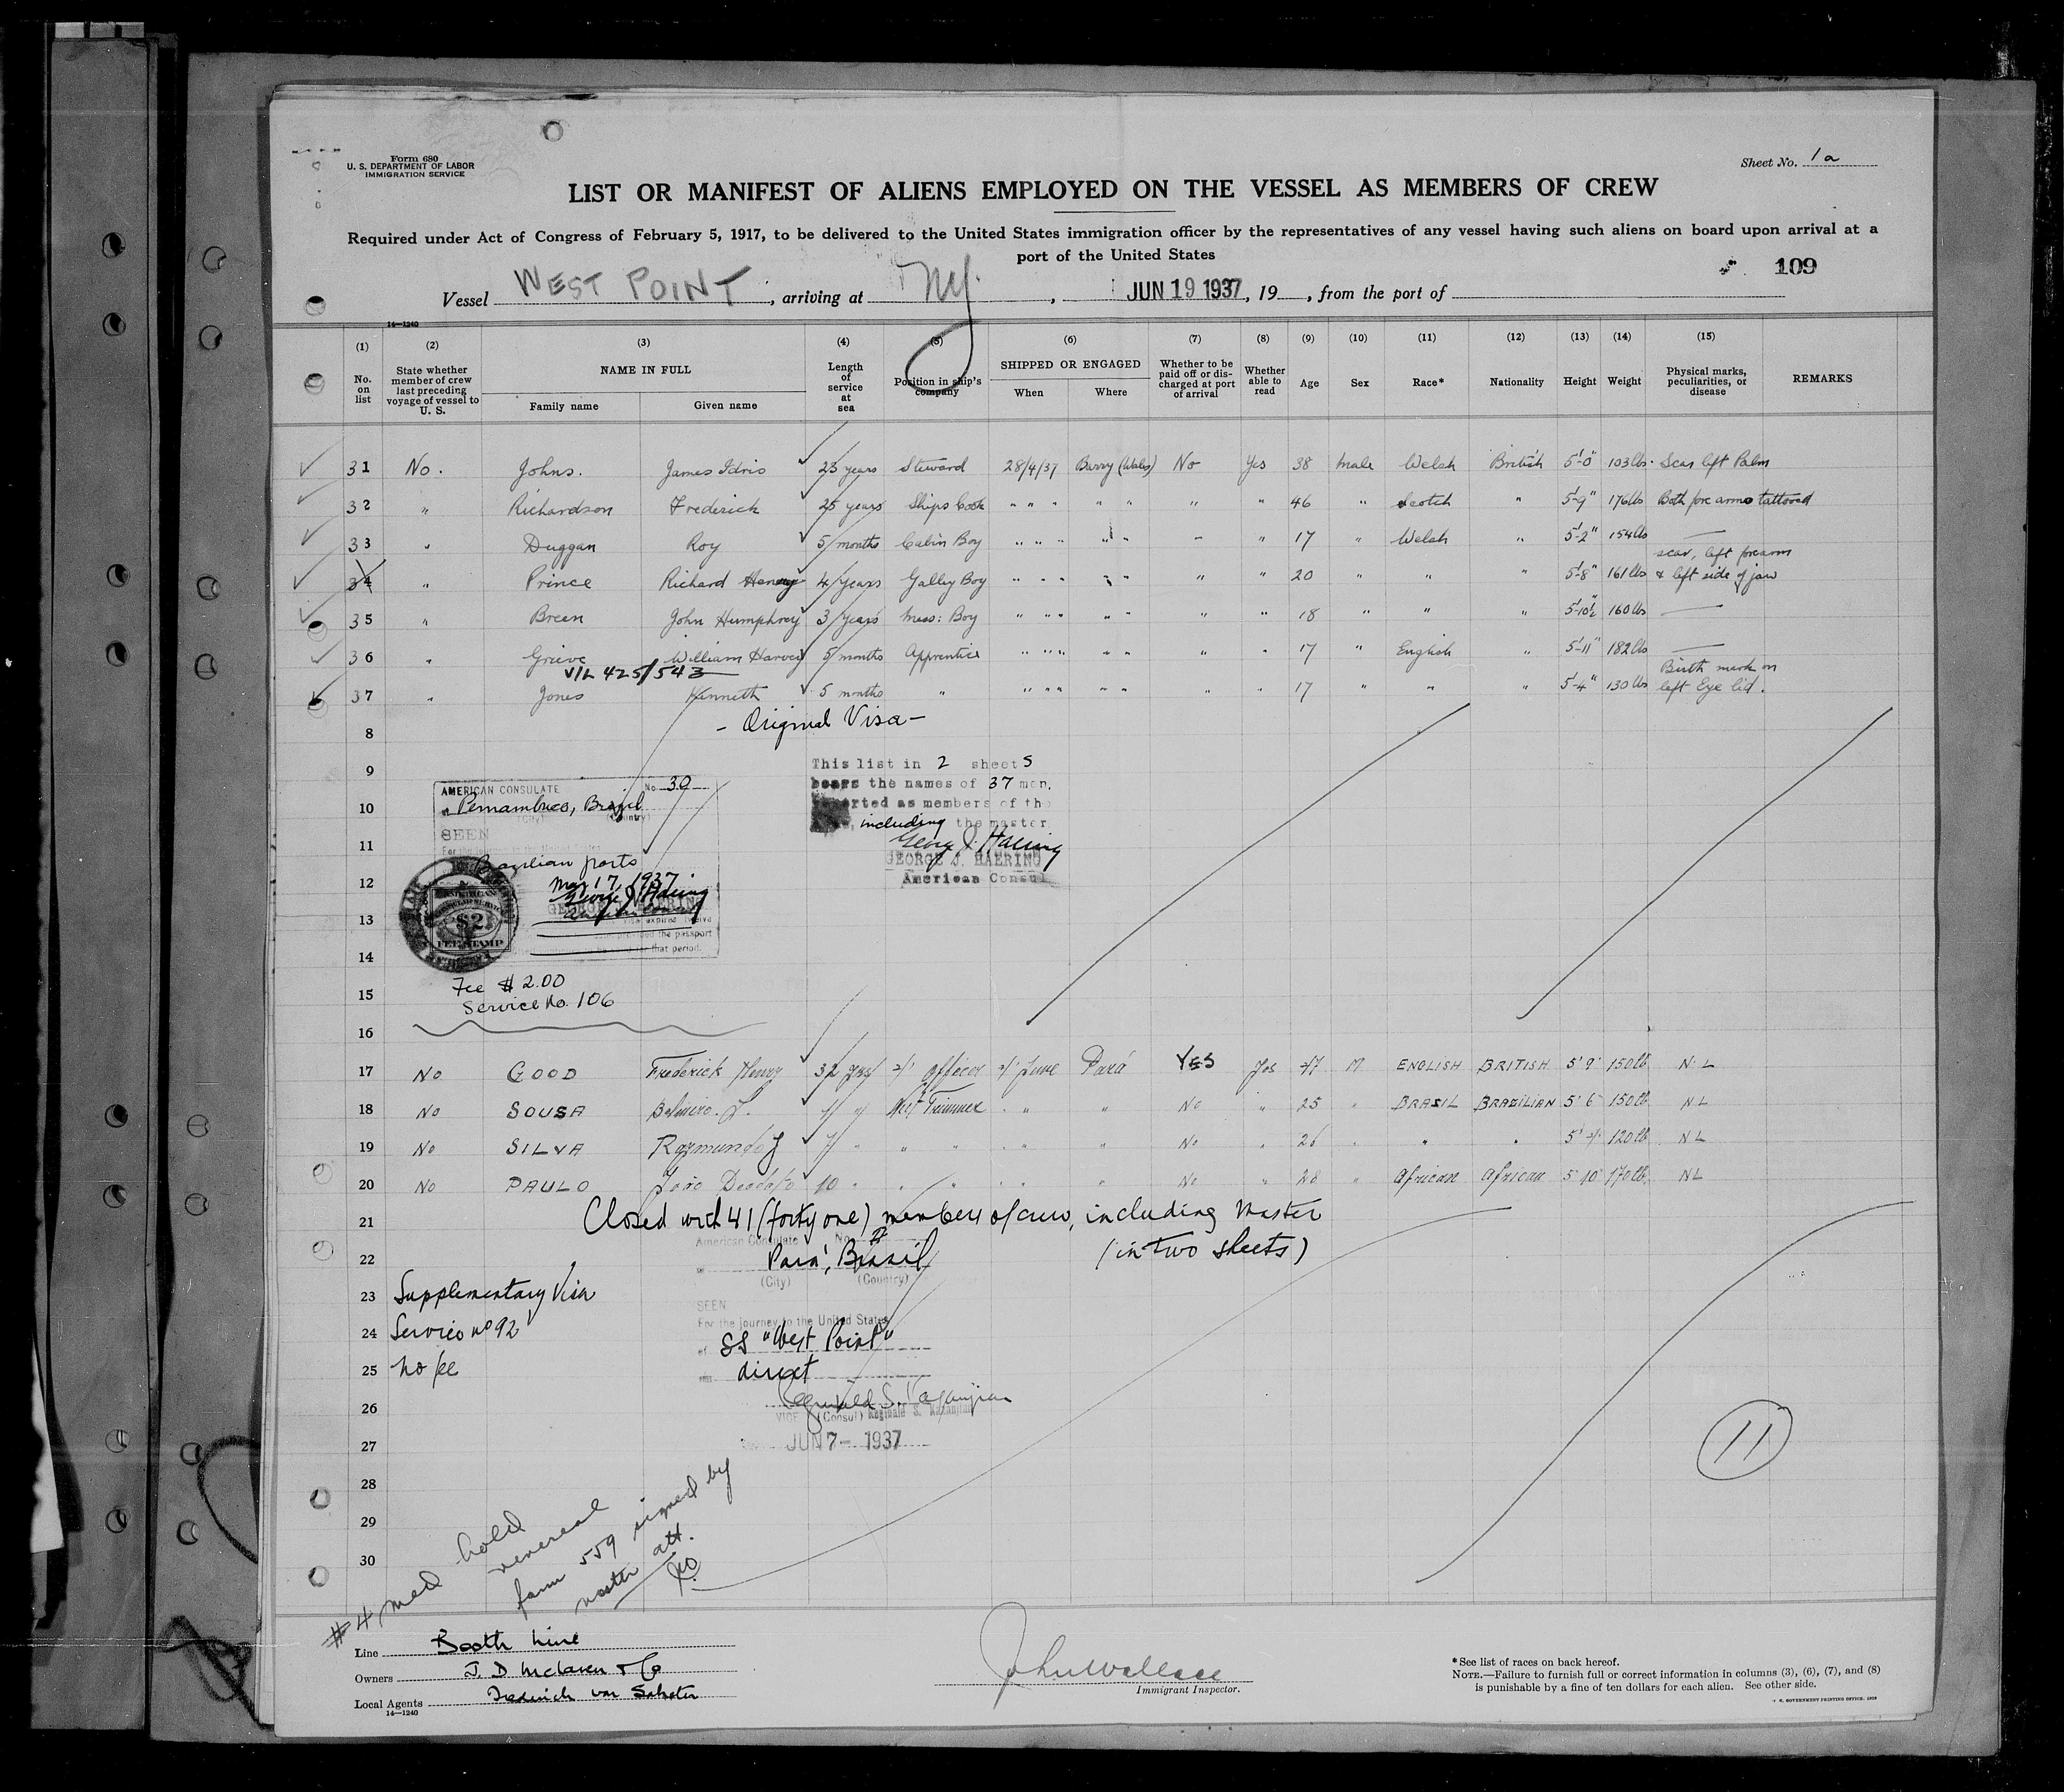 Form 680
U. S. DEPARTMENT OF LABOR
IMMIGRATION SERVICE
Sheet No. 1a
LIST OR MANIFEST OF ALIENS EMPLOYED ON THE VESSEL AS MEMBERS OF CREW
Required under Act of Congress of February 5, 1917, to be delivered to the United States immigration officer by the representatives of any vessel having such aliens on board upon arrival at a
port of the United States
109
Vessel WEST POINT, arriving at NY, JUN 19 1937, 19 , from the port of
14—1240
(1) (2) (3) (4) (5) (6) (7) (8) (9) (10) (11) (12) (13) (14) (15)
No. on list
State whether member of crew last preceding voyage of vessel to U. S.
NAME IN FULL
Family name
Given name
Length of service at sea
Position in ship's company
SHIPPED OR ENGAGED
When
Where
Whether to be paid off or discharged at port of arrival
Whether able to read
Age
Sex
Race*
Nationality
Height
Weight
Physical marks, peculiarities, or disease
REMARKS
31 No. Johns. James Idris 23 years Steward 28/4/37 Barry (Wales) No Yes 38 Male Welsh British 5'-0" 103 lbs. Scar left Palm
32 " Richardson Frederick 25 years Ships Cook " " " " " " " 46 " Scotch " 5'-9" 176 lbs Both fore arms tattooed
33 " Duggan Roy 5 months Cabin Boy " " " " " " " 17 " Welsh " 5'-2" 154 lbs —
34 " Prince Richard Henry 4 years Galley Boy " " " " " " " 20 " " " 5'-8" 161 lbs scar, left forearm & left side of jaw
35 " Breen John Humphrey 3 years Mess: Boy " " " " " " " 18 " " " 5'-10½" 160 lbs —
36 " Grieve William Harvey 5 months Apprentice " " " " " " " 17 " English " 5'-11" 182 lbs —
V/L 425/543
37 " Jones Kenneth 5 months " " " " " " " " 17 " " " 5'-4" 130 lbs Birth mark on left Eye lid.
8
- Original Visa -
9
This list in 2 sheets
bears the names of 37 men,
as members of the
including the master.
George J. Haering
GEORGE J. HAERING
American Consul
AMERICAN CONSULATE No. 30
10
Pernambuco, Brazil
(City) (Country)
SEEN
11
Brazilian ports
12
May 17, 1937
George J. Haering
13
$2
FEE STAMP
the passport
that period.
14
Fee $2.00
15
Service No. 106
16
17 No GOOD Frederick Henry 32 yrs Officer June Pará YES Yes 47 M ENGLISH BRITISH 5' 9" 150lb N.L
18 No SOUSA Trimmer " " No " 25 " BRASIL BRAZILIAN 5' 6" 150lb NL
19 No SILVA Raymundo J " " " " " No " 26 " " " 120lb NL
20 No PAULO João 10 " " " " " No " 28 " African African 5' 10" 170lb. NL
21
Closed with 41 (forty one) members of crew, including Master
(in two sheets)
American Consulate No.
22
Pará, Brasil
(City) (Country)
23 Supplementary Visa
SEEN
For the journey to the United States
24 Service nº 92
of SS "West Point"
25 No fee
direct
26
VICE (Consul) Reginald S. Kazanjian
27
JUN 7- 1937
28
29
30
#4 med hold
venereal
form 559 signed by
master att.
11
Line Booth Line
Owners J. D McLaren & Co
Local Agents
14—1240
John Wallace
Immigrant Inspector.
*See list of races on back hereof.
NOTE.—Failure to furnish full or correct information in columns (3), (6), (7), and (8)
is punishable by a fine of ten dollars for each alien. See other side.